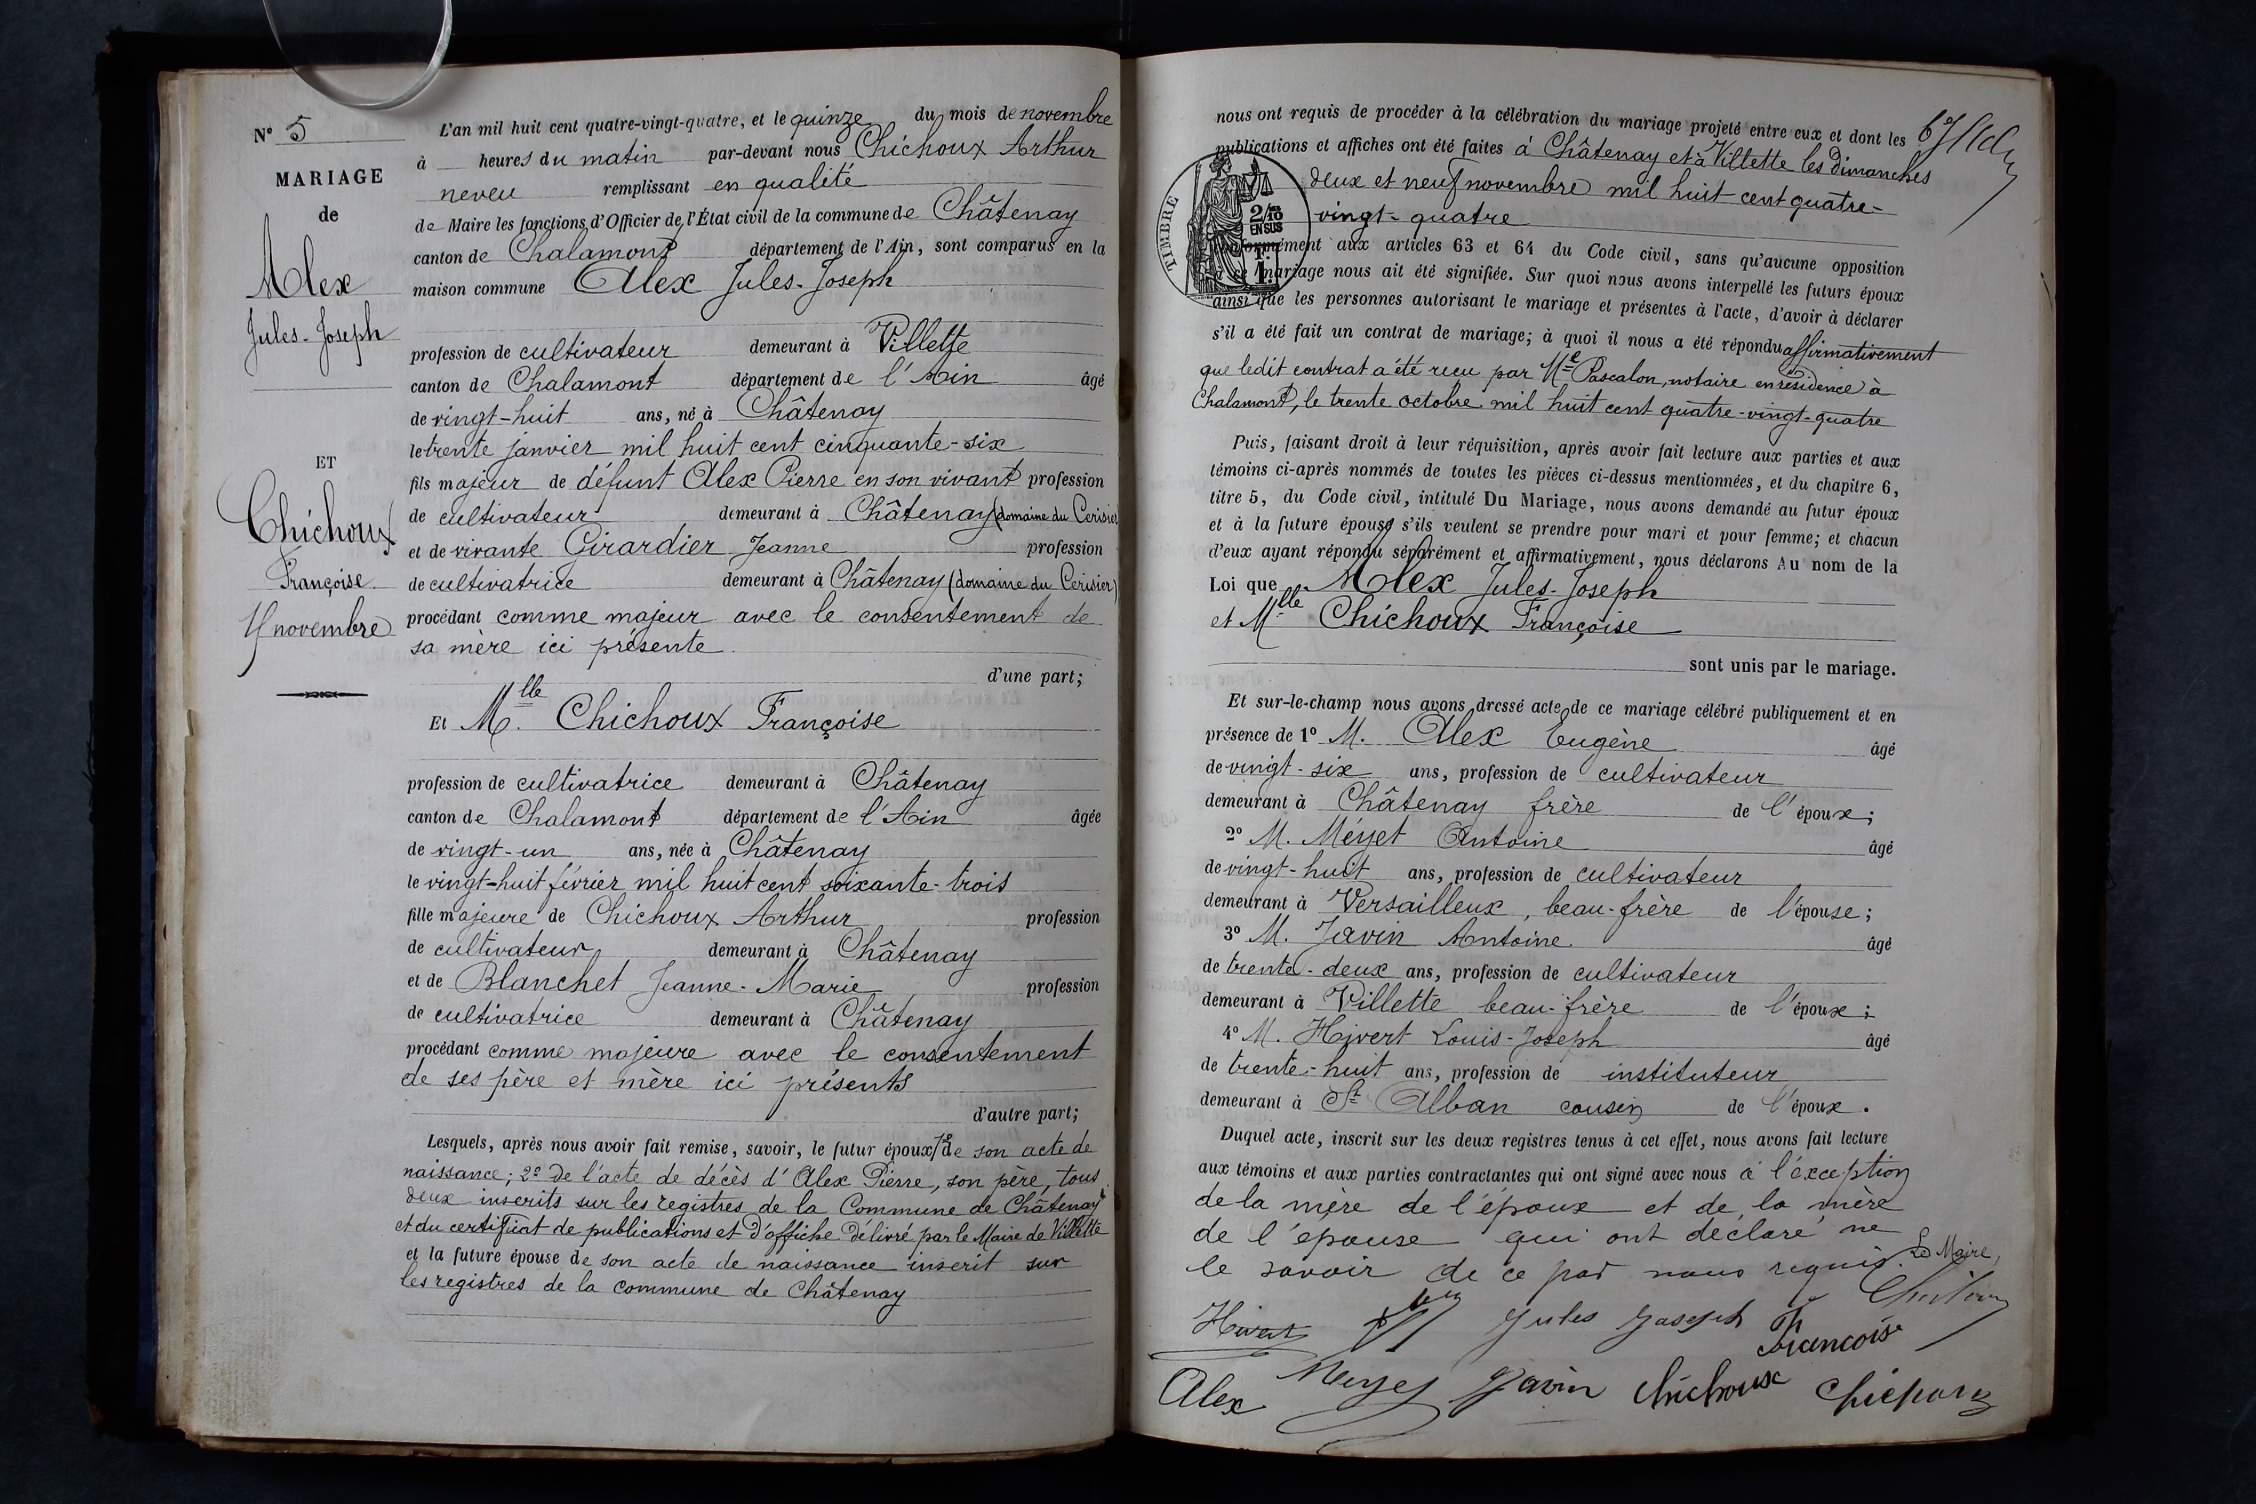 N° 5
MARIAGE
de
Alex
Jules-Joseph
ET
Chichoux
Françoise
novembre
L'an mil huit cent quatre-vingt-quatre, et le quinze du mois de novembre
à heures du matin par-devant nous Chichoux Arthur
neveu remplissant en qualité
de Maire les fonctions d'Officier de l'État civil de la commune de Châtenay
canton de Chalamont département de l'Ain, sont comparus en la
maison commune Alex Jules-Joseph
profession de cultivateur demeurant à Villette
canton de Chalamont département de l'Ain âgé
de vingt-huit ans, né à Châtenay
le trente janvier mil huit cent cinquante-six
fils majeur de défunt Alex Pierre en son vivant profession
de cultivateur demeurant à Châtenay (domaine du Cerisier
et de vivante Girardier Jeanne profession
de cultivatrice demeurant à Châtenay (domaine du Cerisier)
procédant comme majeur avec le consentement de
sa mère ici présente
d'une part;
Et Mlle Chichoux Françoise
profession de cultivatrice demeurant à Châtenay
canton de Chalamont département de l'Ain âgée
de vingt-un ans, née à Châtenay
le vingt-huit février mil huit cent soixante-trois
fille majeure de Chichoux Arthur profession
de cultivateur demeurant à Châtenay
et de Blanchet Jeanne-Marie profession
de cultivatrice demeurant à Châtenay
procédant comme majeure avec le consentement
de ses père et mère ici présents
d'autre part;
Lesquels, après nous avoir fait remise, savoir, le futur époux 1° de son acte de
naissance; 2° de l'acte de décès d'Alex Pierre, son père, tous
deux inscrits sur les registres de la Commune de Châtenay
et du certificat de publications et d'affiche délivré par le Maire de Villette
et la future épouse de son acte de naissance inscrit sur
les registres de la commune de Châtenay
nous ont requis de procéder à la célébration du mariage projeté entre eux et dont les
publications et affiches ont été faites à Châtenay et à Villette les dimanches
deux et neuf novembre mil huit cent quatre-
vingt-quatre
TIMBRE
2/10
EN SUS
1 F.
conformément aux articles 63 et 64 du Code civil, sans qu'aucune opposition
à ce mariage nous ait été signifiée. Sur quoi nous avons interpellé les futurs époux
ainsi que les personnes autorisant le mariage et présentes à l'acte, d'avoir à déclarer
s'il a été fait un contrat de mariage; à quoi il nous a été répondu affirmativement
que ledit contrat a été reçu par Me Pascalon, notaire en résidence à
Chalamont, le trente octobre mil huit cent quatre-vingt-quatre
Puis, faisant droit à leur réquisition, après avoir fait lecture aux parties et aux
témoins ci-après nommés de toutes les pièces ci-dessus mentionnées, et du chapitre 6,
titre 5, du Code civil, intitulé Du Mariage, nous avons demandé au futur époux
et à la future épouse s'ils veulent se prendre pour mari et pour femme; et chacun
d'eux ayant répondu séparément et affirmativement, nous déclarons Au nom de la
Loi que Alex Jules-Joseph
et Mlle Chichoux Françoise
sont unis par le mariage.
Et sur-le-champ nous avons dressé acte de ce mariage célébré publiquement et en
présence de 1° M. Alex Eugène âgé
de vingt-six ans, profession de cultivateur
demeurant à Châtenay frère de l'époux;
2° M. Méyet Antoine âgé
de vingt-huit ans, profession de cultivateur
demeurant à Versailleux, beau-frère de l'épouse;
3° M. Javin Antoine âgé
de trente-deux ans, profession de cultivateur
demeurant à Villette beau-frère de l'époux;
4° M. Hivert Louis-Joseph âgé
de trente-huit ans, profession de instituteur
demeurant à St Alban cousin de l'époux.
Duquel acte, inscrit sur les deux registres tenus à cet effet, nous avons fait lecture
aux témoins et aux parties contractantes qui ont signé avec nous à l'exception
de la mère de l'époux et de la mère
de l'épouse qui ont déclaré ne
le savoir de ce par nous requis. Le Maire,
Hivert Jules Joseph Françoise
Alex Meyet Javin Chichoux